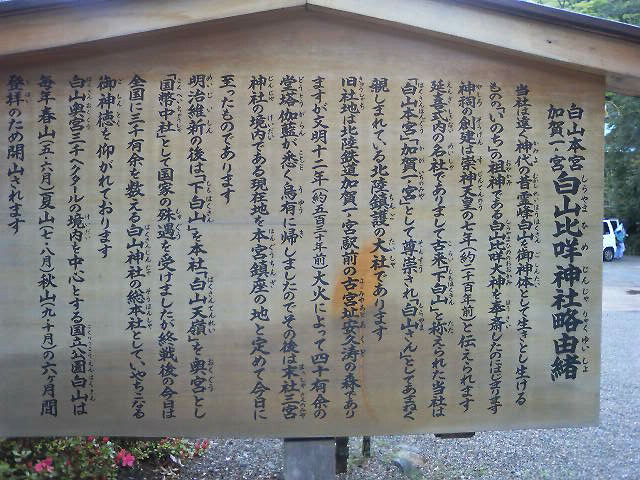 白山本宮
加賀一宮
白山比咩神社略由緒
しらやまひめじんじゃりゃくゆいしょ
当社は遠く神代の昔霊峰白山を御神体として生きとし生ける
ものの"いのち"の祖神である白山比咩大神を奉斎したのにはじまります
神祠の創建は崇神天皇の七年(約二千百年前)と伝えられます
延喜式内の名社でありまして古来「下白山」と称えられた当社は
「白山本宮」「加賀一宮」として尊崇され「白山さん」としてあまねく
親しまれている北陸鎮護の大社であります
旧社地は北陸鉄道加賀一宮駅前の古宮址安久濤の森であり
ますが文明十二年(約五百二十年前)大火によって四十有余の
堂塔伽藍が悉く烏有に帰しましたのでその後は末社三宮
神社の境内である現在地を本宮鎮座の地と定めて今日に
至ったものであります
明治維新の後は「下白山」を本社「白山天嶺」を奥宮とし
「国幣中社」として国家の殊遇を受けましたが終戦後の今日は
全国に三千有余を数える白山神社の総本社としていやちこなる
御神徳を仰がれております
白山奥宮三千ヘクタールの境内を中心とする国立公園白山は
毎年春山(五・六月)夏山(七・八月)秋山(九・十月)の六ヶ月間
登拝のため開山されます